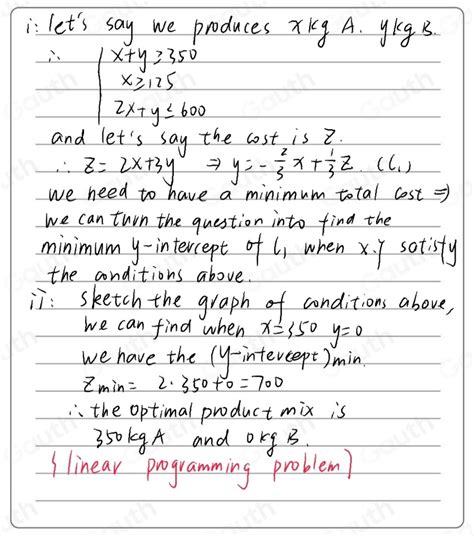 i: let's say we produces x kg A. y kg B.
∴ { x+y ≥ 350
x ≥ 125
2x+y ≤ 600
and let's say the cost is Z.
∴ Z = 2x+3y ⇒ y = -2/3 x + 1/3 Z. (l₁)
we need to have a minimum total cost ⇒
we can turn the question into find the
minimum y-intercept of l₁ when x.y satisfy
the conditions above.
ii: sketch the graph of conditions above,
we can find when x=350 y=0
we have the (y-intercept)min.
Zmin = 2·350+0 = 700
∴ the optimal product mix is
350kg A and 0kg B.
{ linear programming problem }